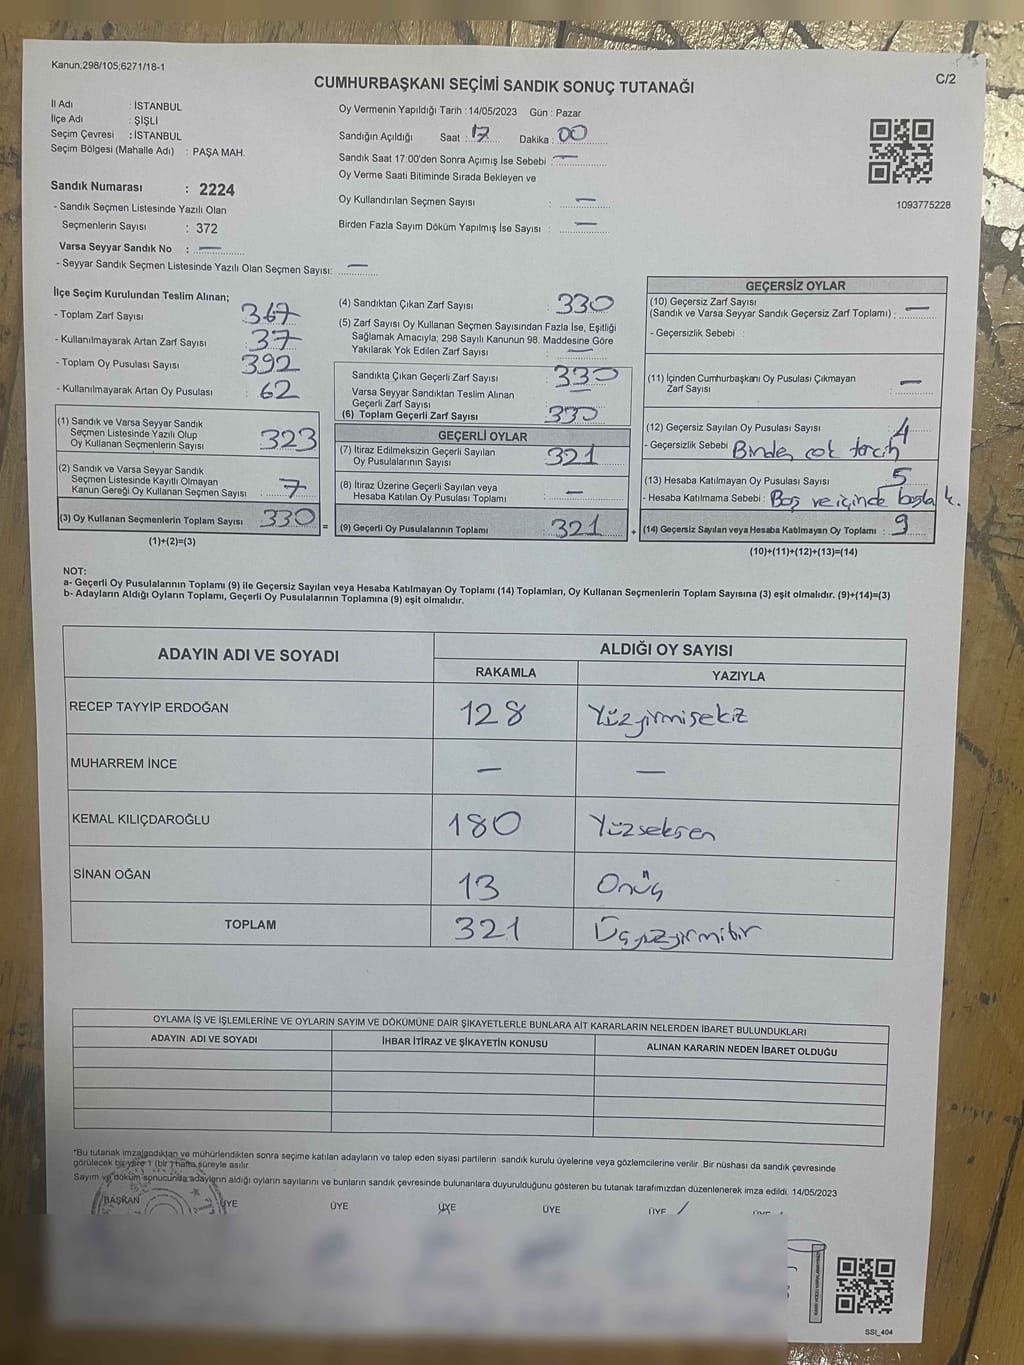 Kanun;298/105;6271/18-1
C/2
CUMHURBAŞKANI SEÇİMİ SANDIK SONUÇ TUTANAĞI
İl Adı : İSTANBUL
İlçe Adı : ŞİŞLİ
Seçim Çevresi : İSTANBUL
Seçim Bölgesi (Mahalle Adı) : PAŞA MAH.
Sandık Numarası : 2224
- Sandık Seçmen Listesinde Yazılı Olan
Seçmenlerin Sayısı : 372
Varsa Seyyar Sandık No : —
- Seyyar Sandık Seçmen Listesinde Yazılı Olan Seçmen Sayısı: —
Oy Vermenin Yapıldığı Tarih : 14/05/2023 Gün : Pazar
Sandığın Açıldığı Saat : 17 Dakika : 00
Sandık Saat 17:00'den Sonra Açımış İse Sebebi : —
Oy Verme Saati Bitiminde Sırada Bekleyen ve
Oy Kullandırılan Seçmen Sayısı : —
Birden Fazla Sayım Döküm Yapılmış İse Sayısı : —
1093775228
İlçe Seçim Kurulundan Teslim Alınan;
- Toplam Zarf Sayısı : 367
- Kullanılmayarak Artan Zarf Sayısı : 37
- Toplam Oy Pusulası Sayısı : 392
- Kullanılmayarak Artan Oy Pusulası : 62
(1) Sandık ve Varsa Seyyar Sandık
Seçmen Listesinde Yazılı Olup
Oy Kullanan Seçmenlerin Sayısı : 323
(2) Sandık ve Varsa Seyyar Sandık
Seçmen Listesinde Kayıtlı Olmayan
Kanun Gereği Oy Kullanan Seçmen Sayısı : 7
(3) Oy Kullanan Seçmenlerin Toplam Sayısı : 330 =
(1)+(2)=(3)
(4) Sandıktan Çıkan Zarf Sayısı : 330
(5) Zarf Sayısı Oy Kullanan Seçmen Sayısından Fazla İse, Eşitliği
Sağlamak Amacıyla; 298 Sayılı Kanunun 98. Maddesine Göre
Yakılarak Yok Edilen Zarf Sayısı : —
Sandıkta Çıkan Geçerli Zarf Sayısı : 330
Varsa Seyyar Sandıktan Teslim Alınan
Geçerli Zarf Sayısı : —
(6) Toplam Geçerli Zarf Sayısı : 330
GEÇERLİ OYLAR
(7) İtiraz Edilmeksizin Geçerli Sayılan
Oy Pusulalarının Sayısı : 321
(8) İtiraz Üzerine Geçerli Sayılan veya
Hesaba Katılan Oy Pusulası Toplamı : —
(9) Geçerli Oy Pusulalarının Toplamı : 321 +
GEÇERSİZ OYLAR
(10) Geçersiz Zarf Sayısı
(Sandık ve Varsa Seyyar Sandık Geçersiz Zarf Toplamı) : —
- Geçersizlik Sebebi :
(11) İçinden Cumhurbaşkanı Oy Pusulası Çıkmayan
Zarf Sayısı : —
(12) Geçersiz Sayılan Oy Pusulası Sayısı : 4
- Geçersizlik Sebebi : Birden çok tercih
(13) Hesaba Katılmayan Oy Pusulası Sayısı : 5
- Hesaba Katılmama Sebebi : Boş ve içinde başka k.
(14) Geçersiz Sayılan veya Hesaba Katılmayan Oy Toplamı : 9
(10)+(11)+(12)+(13)=(14)
NOT:
a- Geçerli Oy Pusulalarının Toplamı (9) ile Geçersiz Sayılan veya Hesaba Katılmayan Oy Toplamı (14) Toplamları, Oy Kullanan Seçmenlerin Toplam Sayısına (3) eşit olmalıdır. (9)+(14)=(3)
b- Adayların Aldığı Oyların Toplamı, Geçerli Oy Pusulalarının Toplamına (9) eşit olmalıdır.
ADAYIN ADI VE SOYADI ALDIĞI OY SAYISI
RAKAMLA YAZIYLA
RECEP TAYYİP ERDOĞAN 128 Yüzyirmisekiz
MUHARREM İNCE — —
KEMAL KILIÇDAROĞLU 180 Yüzseksen
SİNAN OĞAN 13 Onüç
TOPLAM 321 Üçyüzyirmibir
OYLAMA İŞ VE İŞLEMLERİNE VE OYLARIN SAYIM VE DÖKÜMÜNE DAİR ŞİKAYETLERLE BUNLARA AİT KARARLARIN NELERDEN İBARET BULUNDUKLARI
ADAYIN ADI VE SOYADI İHBAR İTİRAZ VE ŞİKAYETİN KONUSU ALINAN KARARIN NEDEN İBARET OLDUĞU
*Bu tutanak imzalandıktan ve mühürlendikten sonra seçime katılan adayların ve talep eden siyasi partilerin sandık kurulu üyelerine veya gözlemcilerine verilir. Bir nüshası da sandık çevresinde
görülecek bir yere 1 (bir ) hafta süreyle asılır.
Sayım ve döküm sonucunda adayların aldığı oyların sayılarını ve bunların sandık çevresinde bulunanlara duyurulduğunu gösteren bu tutanak tarafımızdan düzenlenerek imza edildi. 14/05/2023
BAŞKAN ÜYE ÜYE ÜYE ÜYE ÜYE ÜYE
SSI_404